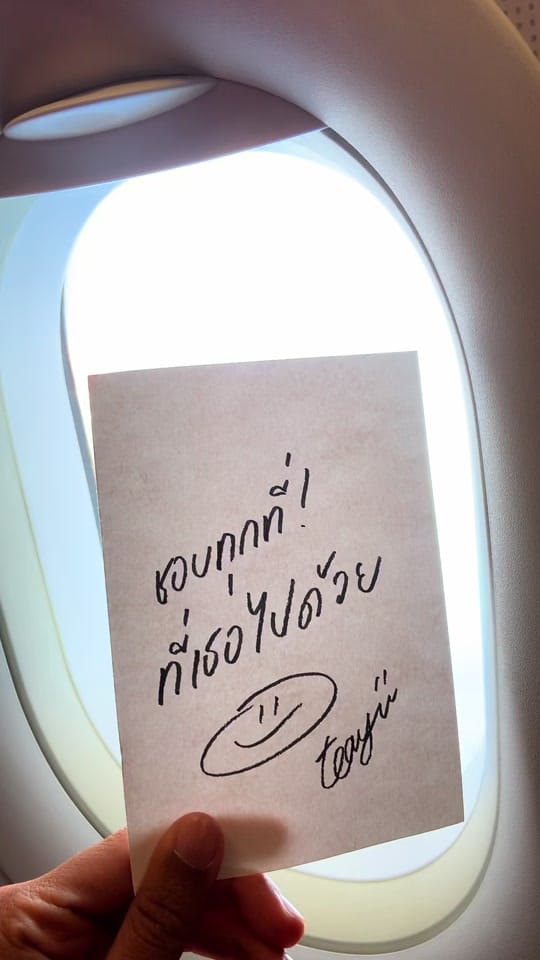 ชอบทุกที่!
ที่เธอไปด้วย
teayii